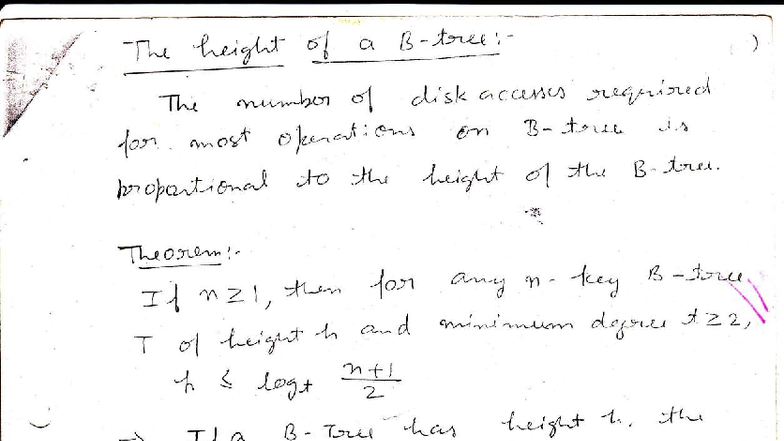 The height of a B-tree:-
The number of disk accesses required
for most operations on B-tree is
proportional to the height of the B-tree.
Theorem:-
If n ≥ 1, then for any n-key B-tree
T of height h and minimum degree t ≥ 2,
h ≤ log_t (n+1)/2
→ If a B-Tree has height h, the